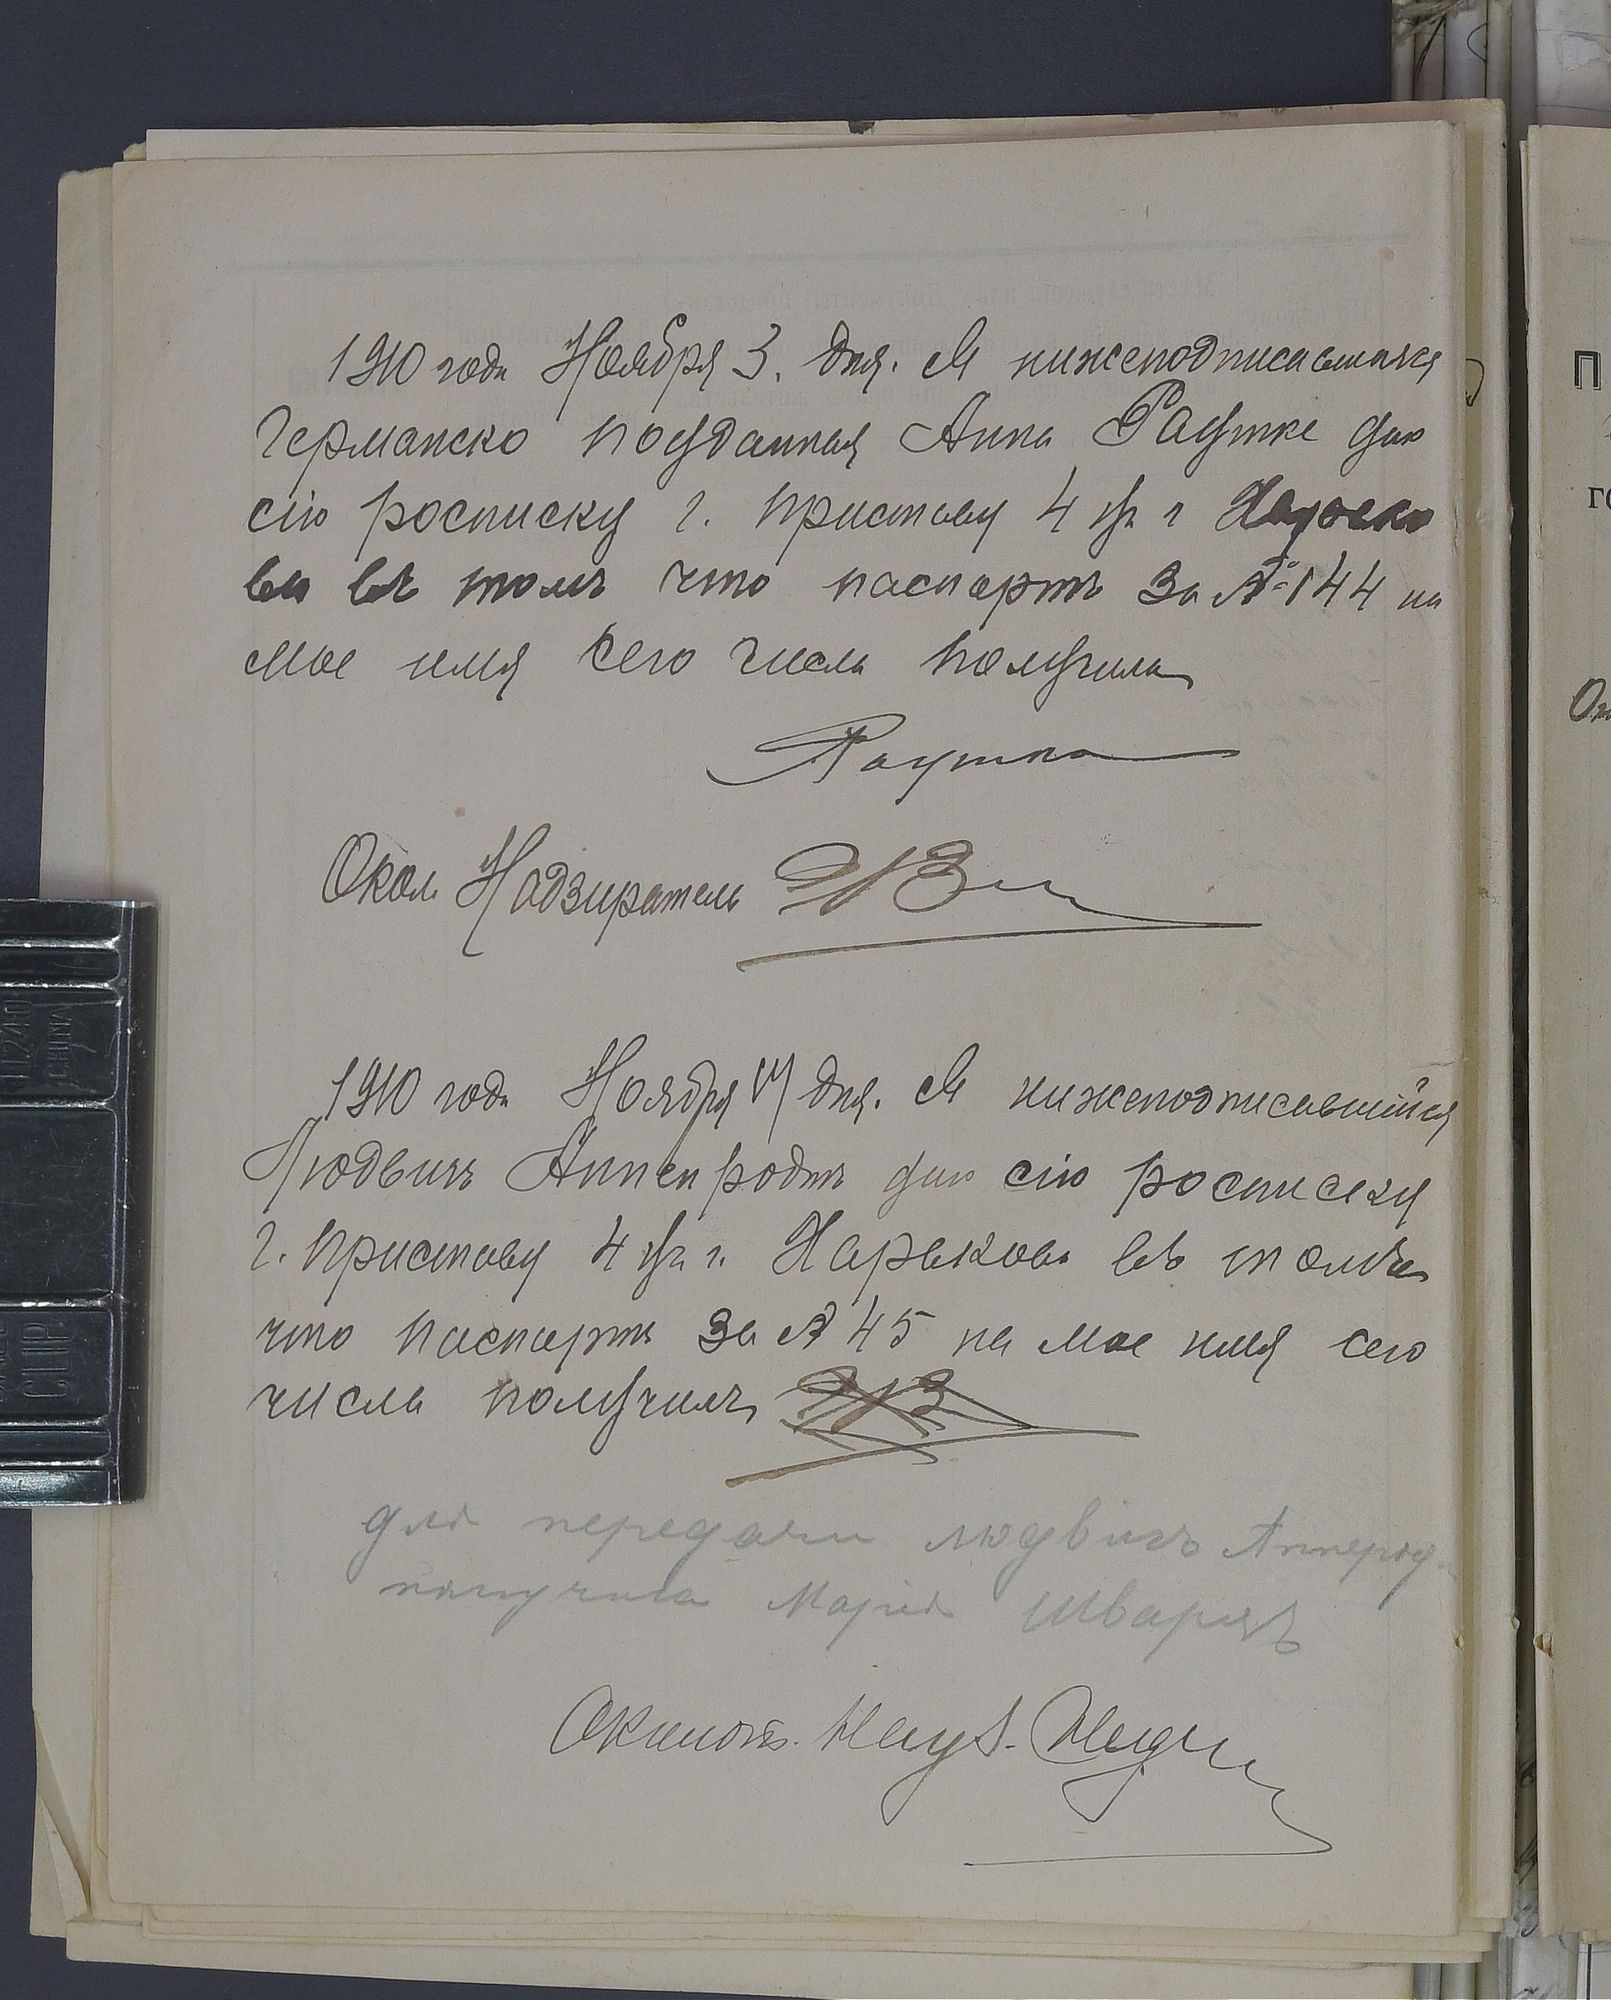 1910 года Ноября 3. дня. Я нижеподписавшаяся
Германско подданная Анна Раутке даю
сію росписку г. Приставу 4 уч. г Харько
ва въ томъ что паспортъ за № 144 на
мое имя сего числа получила
Раутка
Окол. Надзиратель
1910 года Ноября дня. Я нижеподписавшійся
Людвигъ Аппенродтъ даю сію росписку
г. Приставу 4 уч. г. Харькова въ томъ
что паспортъ за № 45 на мое имя сего
числа получилъ
для передачи людвигъ Апперод
получила Марія Шварцъ
Околот. Надз.